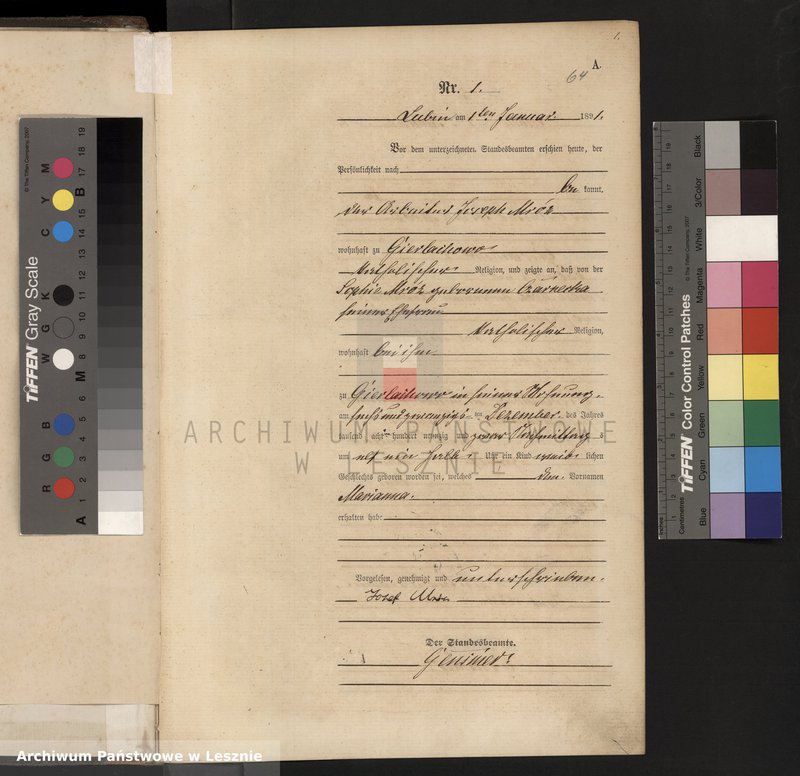 1.
A.
64
Nr. 1.
Lubin am 1ten Januar 1891.
Vor dem unterzeichneten Standesbeamten erschien heute, der
Persönlichkeit nach
be kannt,
der Arbeiter Joseph Mróz
wohnhaft zu Gierlachowo
katholischer Religion, und zeigte an, daß von der
Sophie Mróz geborenen Czarnecka
seiner Ehefrau
katholischer Religion,
wohnhaft bei ihm
zu Gierlachowo in seiner Wohnung,
am sechsundzwanzigsten Dezember des Jahres
tausend acht hundert neunzig und zwar Vormittags
um elf ein halb Uhr ein Kind weib lichen
Geschlechts geboren worden sei, welches den Vornamen
Marianna
erhalten habe
Vorgelesen, genehmigt und unterschrieben.
Josef
Der Standesbeamte.
ARCHIWUM PAŃSTWOWE
W LESZNIE
Archiwum Państwowe w Lesznie
TIFFEN Gray Scale
© The Tiffen Company, 2007
R G B W G K C Y M
A 1 2 3 4 5 6 M 8 9 10 11 12 13 14 15 B 17 18 19
TIFFEN Color Control Patches
© The Tiffen Company, 2007
Blue Cyan Green Yellow Red Magenta White 3/Color Black
Inches
Centimetres